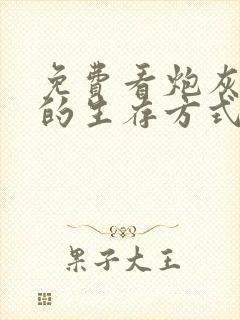 免費看炮灰
的生存方式
果子大王